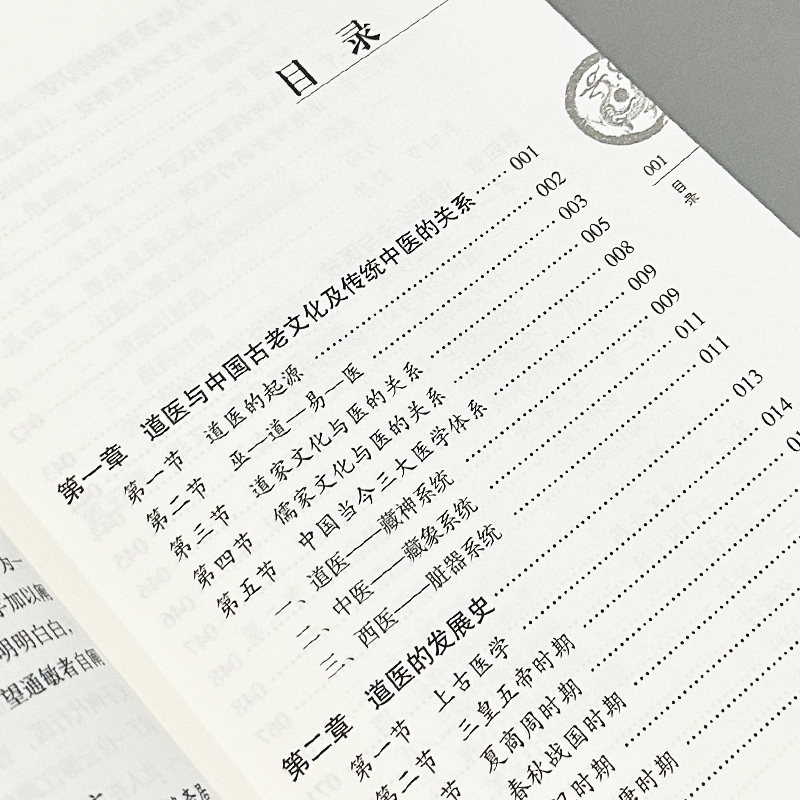 目录
001
目录
第一章 道医与中国古老文化及传统中医的关系 …… 001
第一节 道医的起源 …… 002
第二节 巫—道—易—医 …… 003
第三节 道家文化与医的关系 …… 005
第四节 儒家文化与医的关系 …… 008
第五节 中国当今三大医学体系 …… 009
一、道医——藏神系统 …… 009
二、中医——藏象系统 …… 011
三、西医——脏器系统 …… 011
第二章 道医的发展史 …… 013
第一节 上古医学 …… 014
第二节 三皇五帝时期
节 夏商周时期
春秋战国时期
时期
唐时期
加以阐
明明白白，
望通敏者自阐